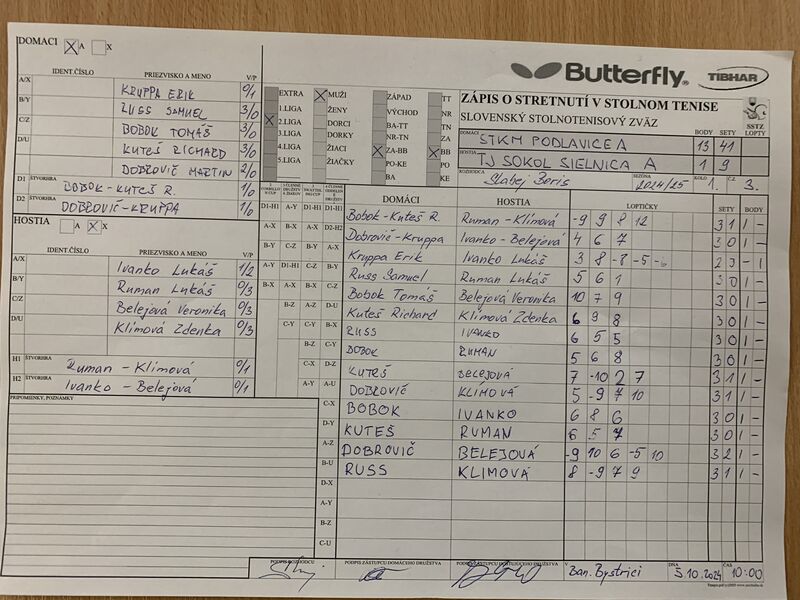 DOMACI X A X
IDENT.ČÍSLO PRIEZVISKO A MENO V/P
A/X KRUPPA ERIK 0/1
B/Y RUSS SAMUEL 3/0
C/Z BOBOK TOMÁŠ 3/0
D/U KUTEŠ RICHARD 3/0
DOBROVIČ MARTIN 2/0
D1 ŠTVORHRA BOBOK-KUTEŠ R. 1/0
D2 DOBROVIČ-KRUPPA 1/0
HOSTIA A X X
IDENT.ČÍSLO PRIEZVISKO A MENO V/P
A/X Ivanko Lukáš 1/2
B/Y Ruman Lukáš 0/3
C/Z Belejová Veronika 0/3
D/U Klímová Zdenka 0/3
H1 ŠTVORHRA Ruman - Klímová 0/1
H2 ŠTVORHRA Ivanko - Belejová 0/1
PRIPOMIENKY, POZNÁMKY
EXTRA X MUŽI ZÁPAD TT
1.LIGA ŽENY VÝCHOD NR
X 2.LIGA DORCI BA-TT TN
3.LIGA DORKY NR-TN ZA
4.LIGA ŽIACI X ZA-BB X BB
5.LIGA ŽIAČKY PO-KE PO
BA KE
Butterfly TIBHAR
ZÁPIS O STRETNUTÍ V STOLNOM TENISE
SLOVENSKÝ STOLNOTENISOVÝ ZVÄZ SSTZ
LOPTKY
DOMÁCI STKM PODLAVICE A BODY 13 SETY 41
HOSTIA TJ SOKOL SIELNICA A 1 9
ROZHODCA Slabej Boris SEZÓNA 2024/25 KOLO 1. Č.Z. 3.
DOMÁCI HOSTIA LOPTIČKY SETY BODY
D1-H1 A-Y D1-H1 D1-H1 Bobok-Kuteš R. Ruman-Klímová -9 9 8 12 3 1 1 -
A-X B-X A-X D2-H2 Dobrovič-Kruppa Ivanko-Belejová 4 6 7 3 0 1 -
B-Y C-Z B-Y A-X Kruppa Erik Ivanko Lukáš 3 8 -8 -5 -6 2 3 - 1
A-Y D1-H1 C-Z B-Y Russ Samuel Ruman Lukáš 5 6 1 3 0 1 -
B-X A-X B-X C-Z Bobok Tomáš Belejová Veronika 10 7 9 3 0 1 -
B-Z A-Z D-U Kuteš Richard Klímová Zdenka 6 9 8 3 0 1 -
C-Y C-Y B-X RUSS IVANKO 6 5 5 3 0 1 -
B-Z C-Y BOBOK RUMAN 5 6 8 3 0 1 -
C-X D-Z KUTEŠ BELEJOVÁ 7 -10 2 7 3 1 1 -
A-Y A-U DOBROVIČ KLÍMOVÁ 5 -9 7 10 3 1 1 -
C-X BOBOK IVANKO 6 8 6 3 0 1 -
D-Y KUTEŠ RUMAN 6 5 7 3 0 1 -
A-Z DOBROVIČ BELEJOVÁ -9 10 6 -5 10 3 2 1 -
B-U RUSS KLÍMOVÁ 8 -9 7 9 3 1 1 -
D-X
A-Y
B-Z
C-U
PODPIS ROZHODCU PODPIS ZÁSTUPCU DOMÁCEHO DRUŽSTVA PODPIS ZÁSTUPCU HOSŤUJÚCEHO DRUŽSTVA V Ban. Bystrici DŇA 5.10.2024 ČAS 10:00